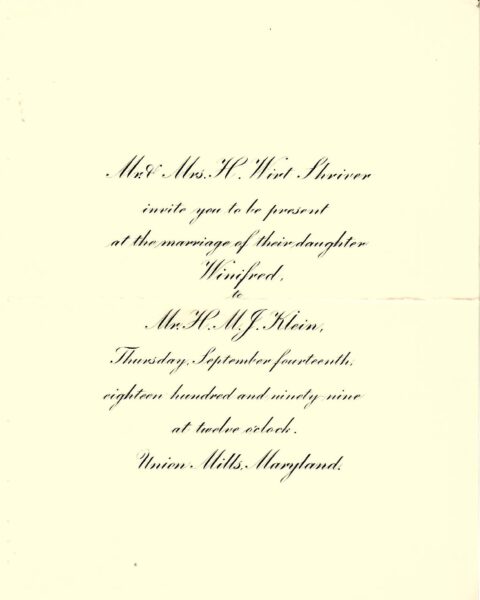 Mr. & Mrs. H. Wirt Shriver
invite you to be present
at the marriage of their daughter
Winifred,
to
Mr. H. M. J. Klein,
Thursday, September fourteenth,
eighteen hundred and ninety nine
at twelve o'clock.
Union Mills, Maryland.